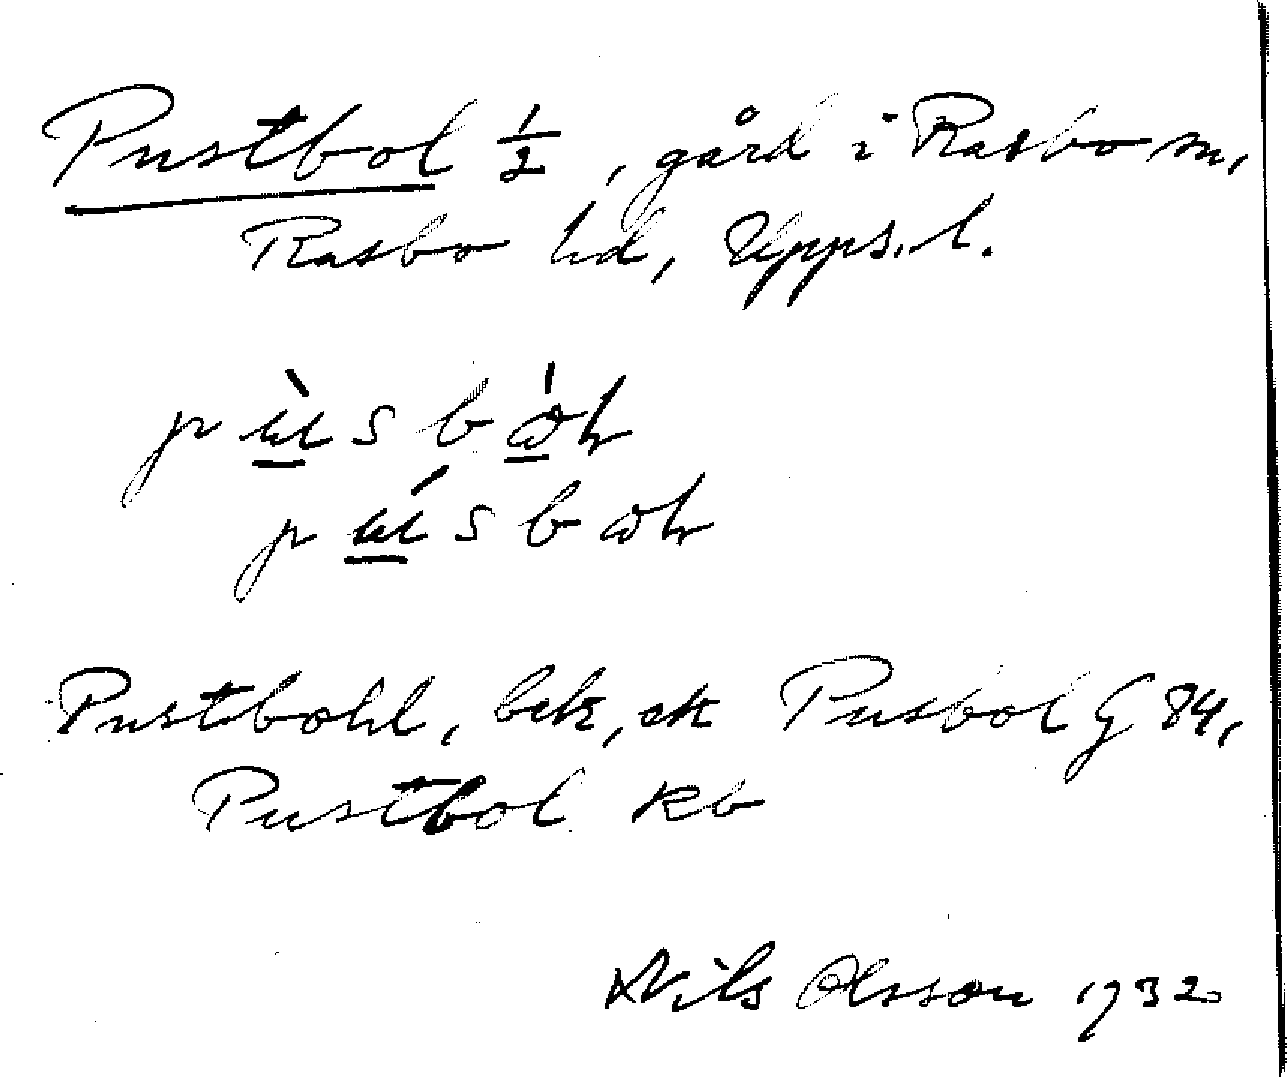 Pustbol ½, gård i Rasbo sn,
Rasbo hd, Upps. l.
Pustbohl, bek, ek Pusbol G 84,
Pustbol kb
Nils Olsson 1932